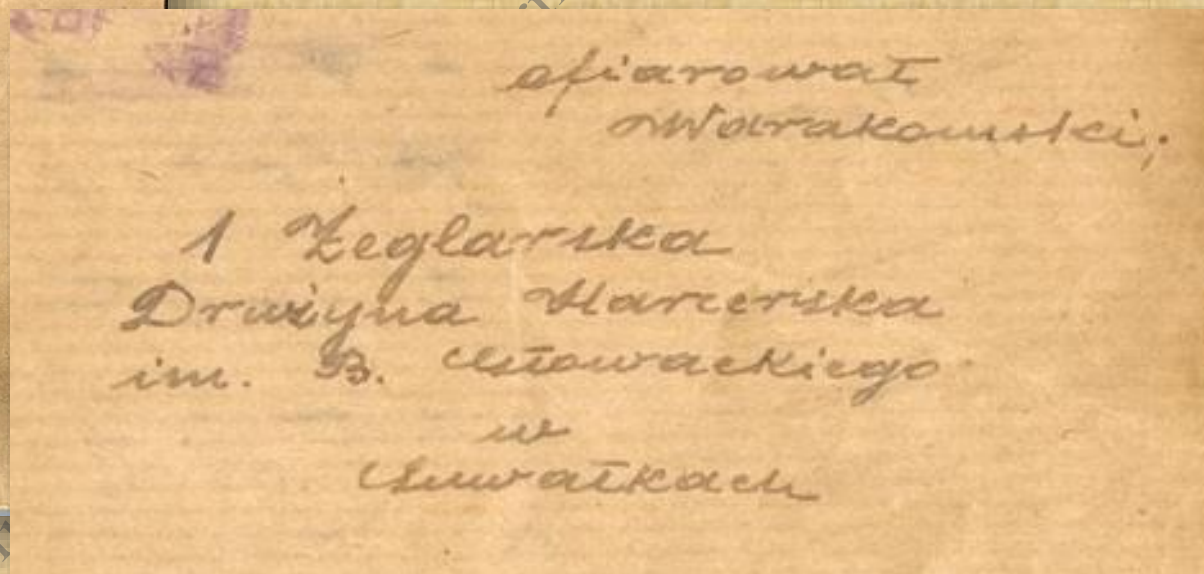 ofiarował
Warakomski,
1 Żeglarska
Drużyna Harcerska
im. B. Słowackiego
w
Suwałkach